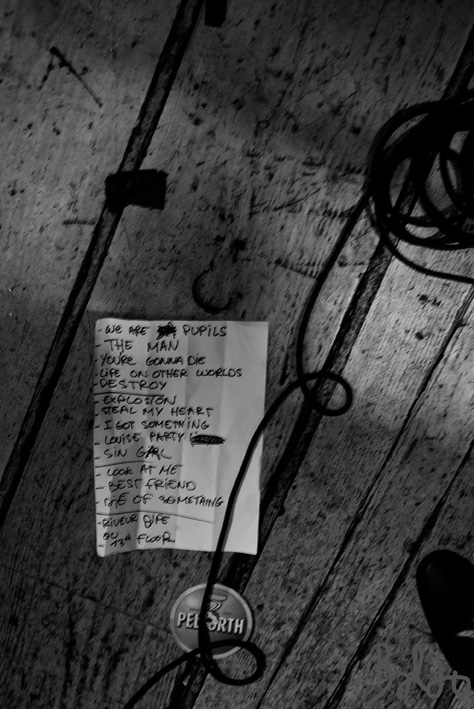 - WE ARE PUPILS
- THE MAN
- YOU'RE GONNA DIE
- LIFE ON OTHER WORLDS
- DESTROY
- EXPLOSION
- STEAL MY HEART
- I GOT SOMETHING
- LOUISE PARTY
- SIN
- LOOK AT ME
- BEST FRIEND
- DIE OF SOMETHING
- RIVEUR
OU
- 13TH FLOOR
PELFORTH